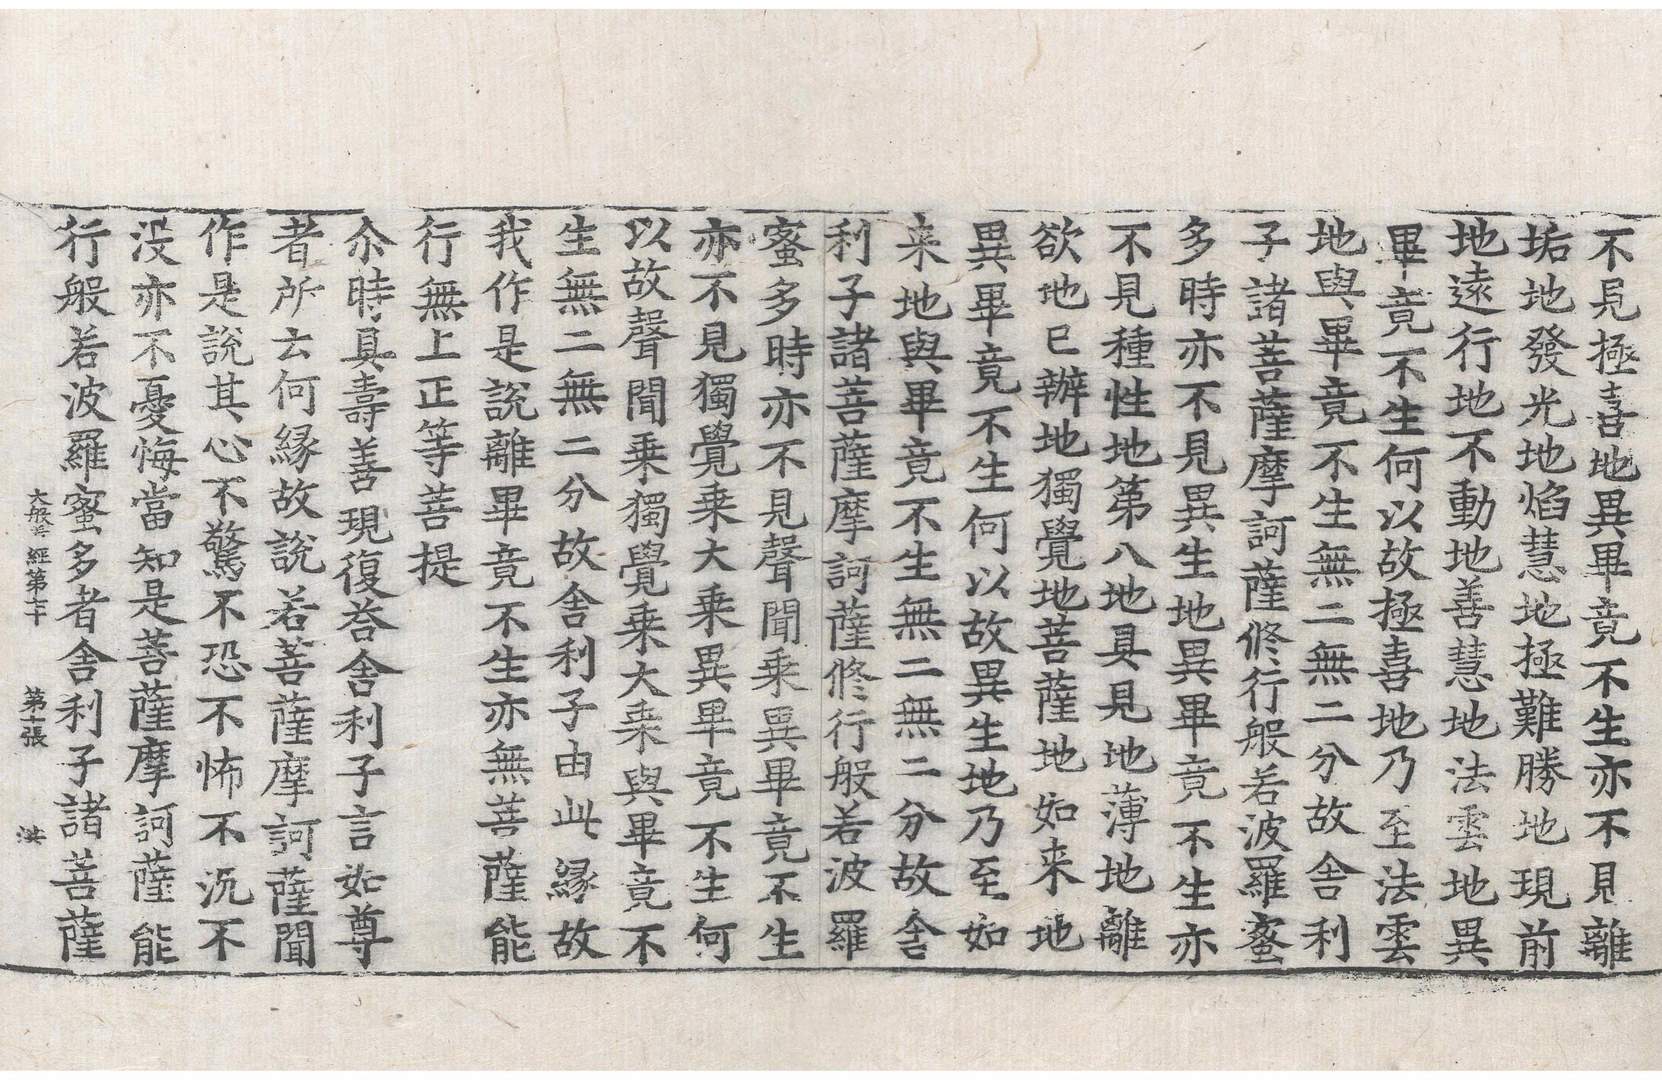 不見極喜地異畢竟不生亦不見離
垢地發光地焰慧地極難勝地現前
地遠行地不動地善慧地法雲地異
畢竟不生何以故極喜地乃至法雲
地與畢竟不生無二無二分故舍利
子諸菩薩摩訶薩修行般若波羅蜜
多時亦不見異生地異畢竟不生亦
不見種性地第八地具見地薄地離
欲地已辦地獨覺地菩薩地如来地
異畢竟不生何以故異生地乃至如
来地與畢竟不生無二無二分故舍
利子諸菩薩摩訶薩修行般若波羅
蜜多時亦不見聲聞乗異畢竟不生
亦不見獨覺乗大乗異畢竟不生何
以故聲聞乗獨覺乗大乗與畢竟不
生無二無二分故舍利子由此緣故
我作是說離畢竟不生亦無菩薩能
行無上正等菩提
尒時具壽善現復荅舍利子言如尊
者所云何緣故說若菩薩摩訶薩聞
作是說其心不驚不恐不怖不沉不
没亦不憂悔當知是菩薩摩訶薩能
行般若波羅蜜多者舍利子諸菩薩
大般 經第七十 第十張 洪